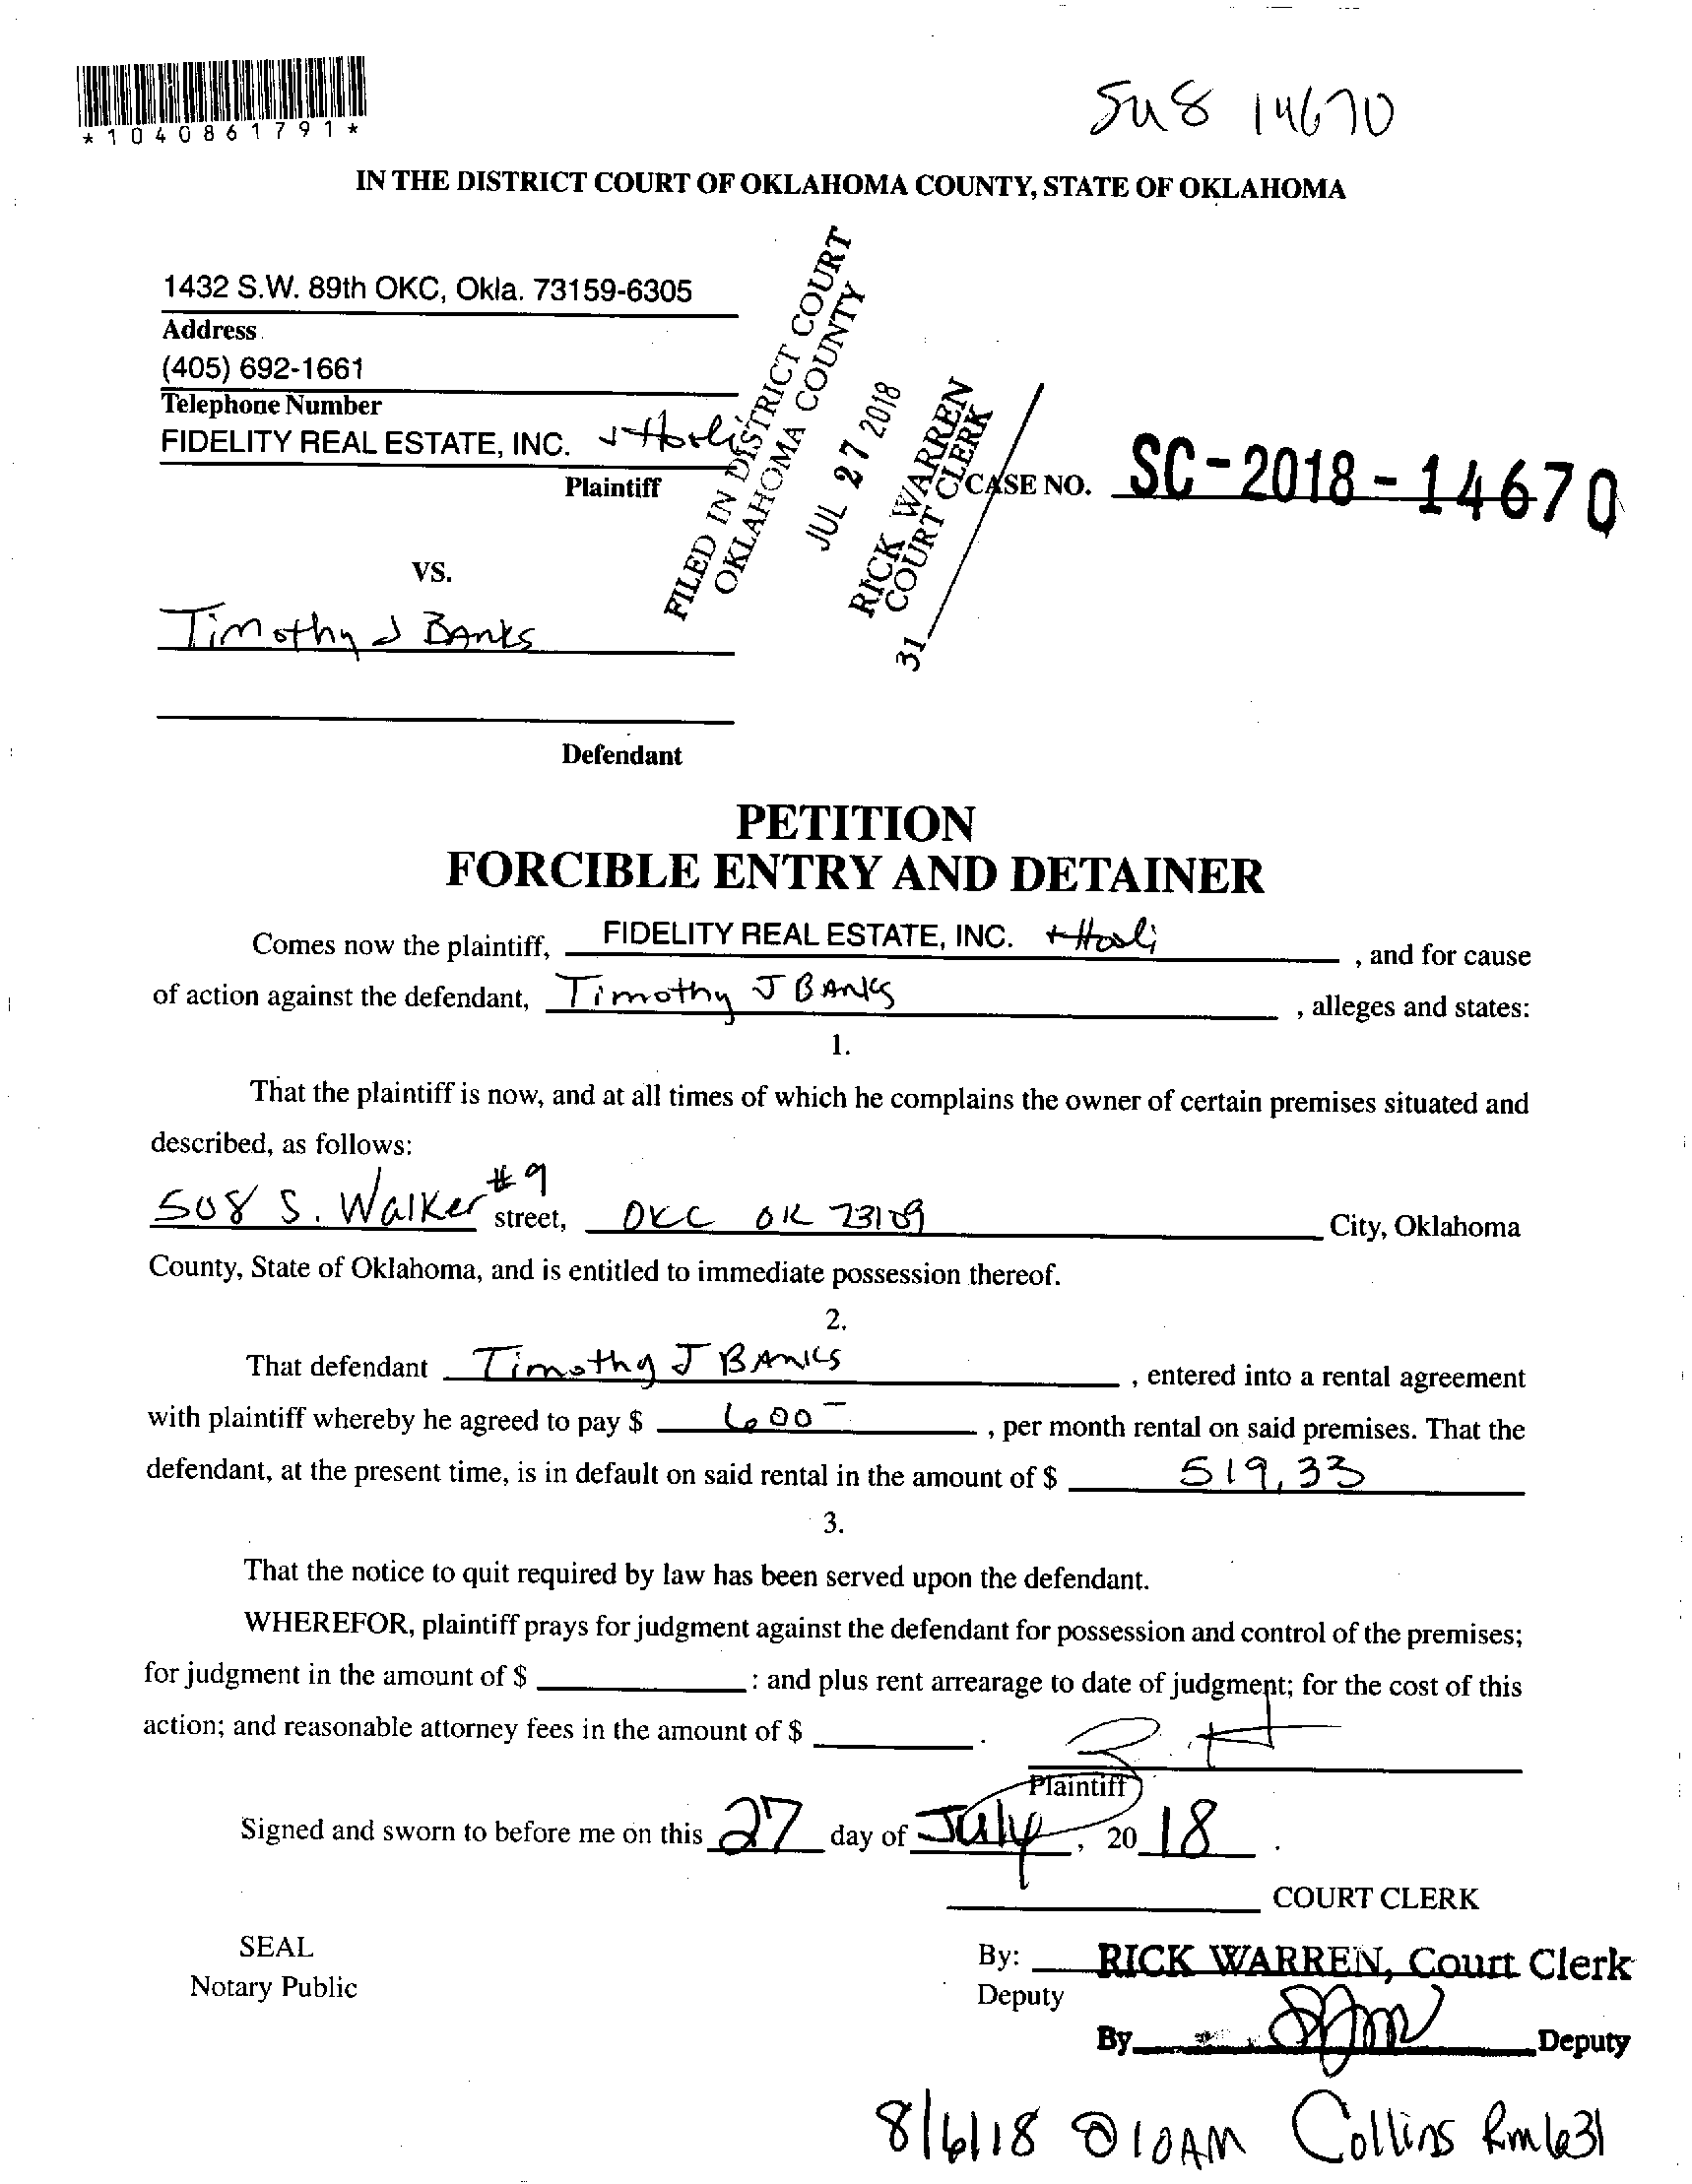 *1040861791*
IN THE DISTRICT COURT OF OKLAHOMA COUNTY, STATE OF OKLAHOMA
1432 S.W. 89th OKC, Okla. 73159-6305
Address
(405) 692-1661
Telephone Number
FIDELITY REAL ESTATE, INC.
Plaintiff
FILED IN DISTRICT COURT
OKLAHOMA COUNTY
JUL 27 2018
RICK WARREN
COURT CLERK
31
CASE NO. SC-2018-14670
VS.
Timothy J Banks
Defendant
PETITION
FORCIBLE ENTRY AND DETAINER
Comes now the plaintiff, FIDELITY REAL ESTATE, INC. , and for cause
of action against the defendant, Timothy J Banks , alleges and states:
1.
That the plaintiff is now, and at all times of which he complains the owner of certain premises situated and
described, as follows:
508 S. Walker #9 street, OKC OK 73109 City, Oklahoma
County, State of Oklahoma, and is entitled to immediate possession thereof.
2.
That defendant Timothy J Banks , entered into a rental agreement
with plaintiff whereby he agreed to pay $ 600- , per month rental on said premises. That the
defendant, at the present time, is in default on said rental in the amount of $ 519.33
3.
That the notice to quit required by law has been served upon the defendant.
WHEREFOR, plaintiff prays for judgment against the defendant for possession and control of the premises;
for judgment in the amount of $ : and plus rent arrearage to date of judgment; for the cost of this
action; and reasonable attorney fees in the amount of $ .
Plaintiff
Signed and sworn to before me on this 27 day of July, 2018.
COURT CLERK
SEAL
Notary Public
By: RICK WARREN, Court Clerk
Deputy
By Deputy
8/6/18 @ 10AM Collins Rm 631